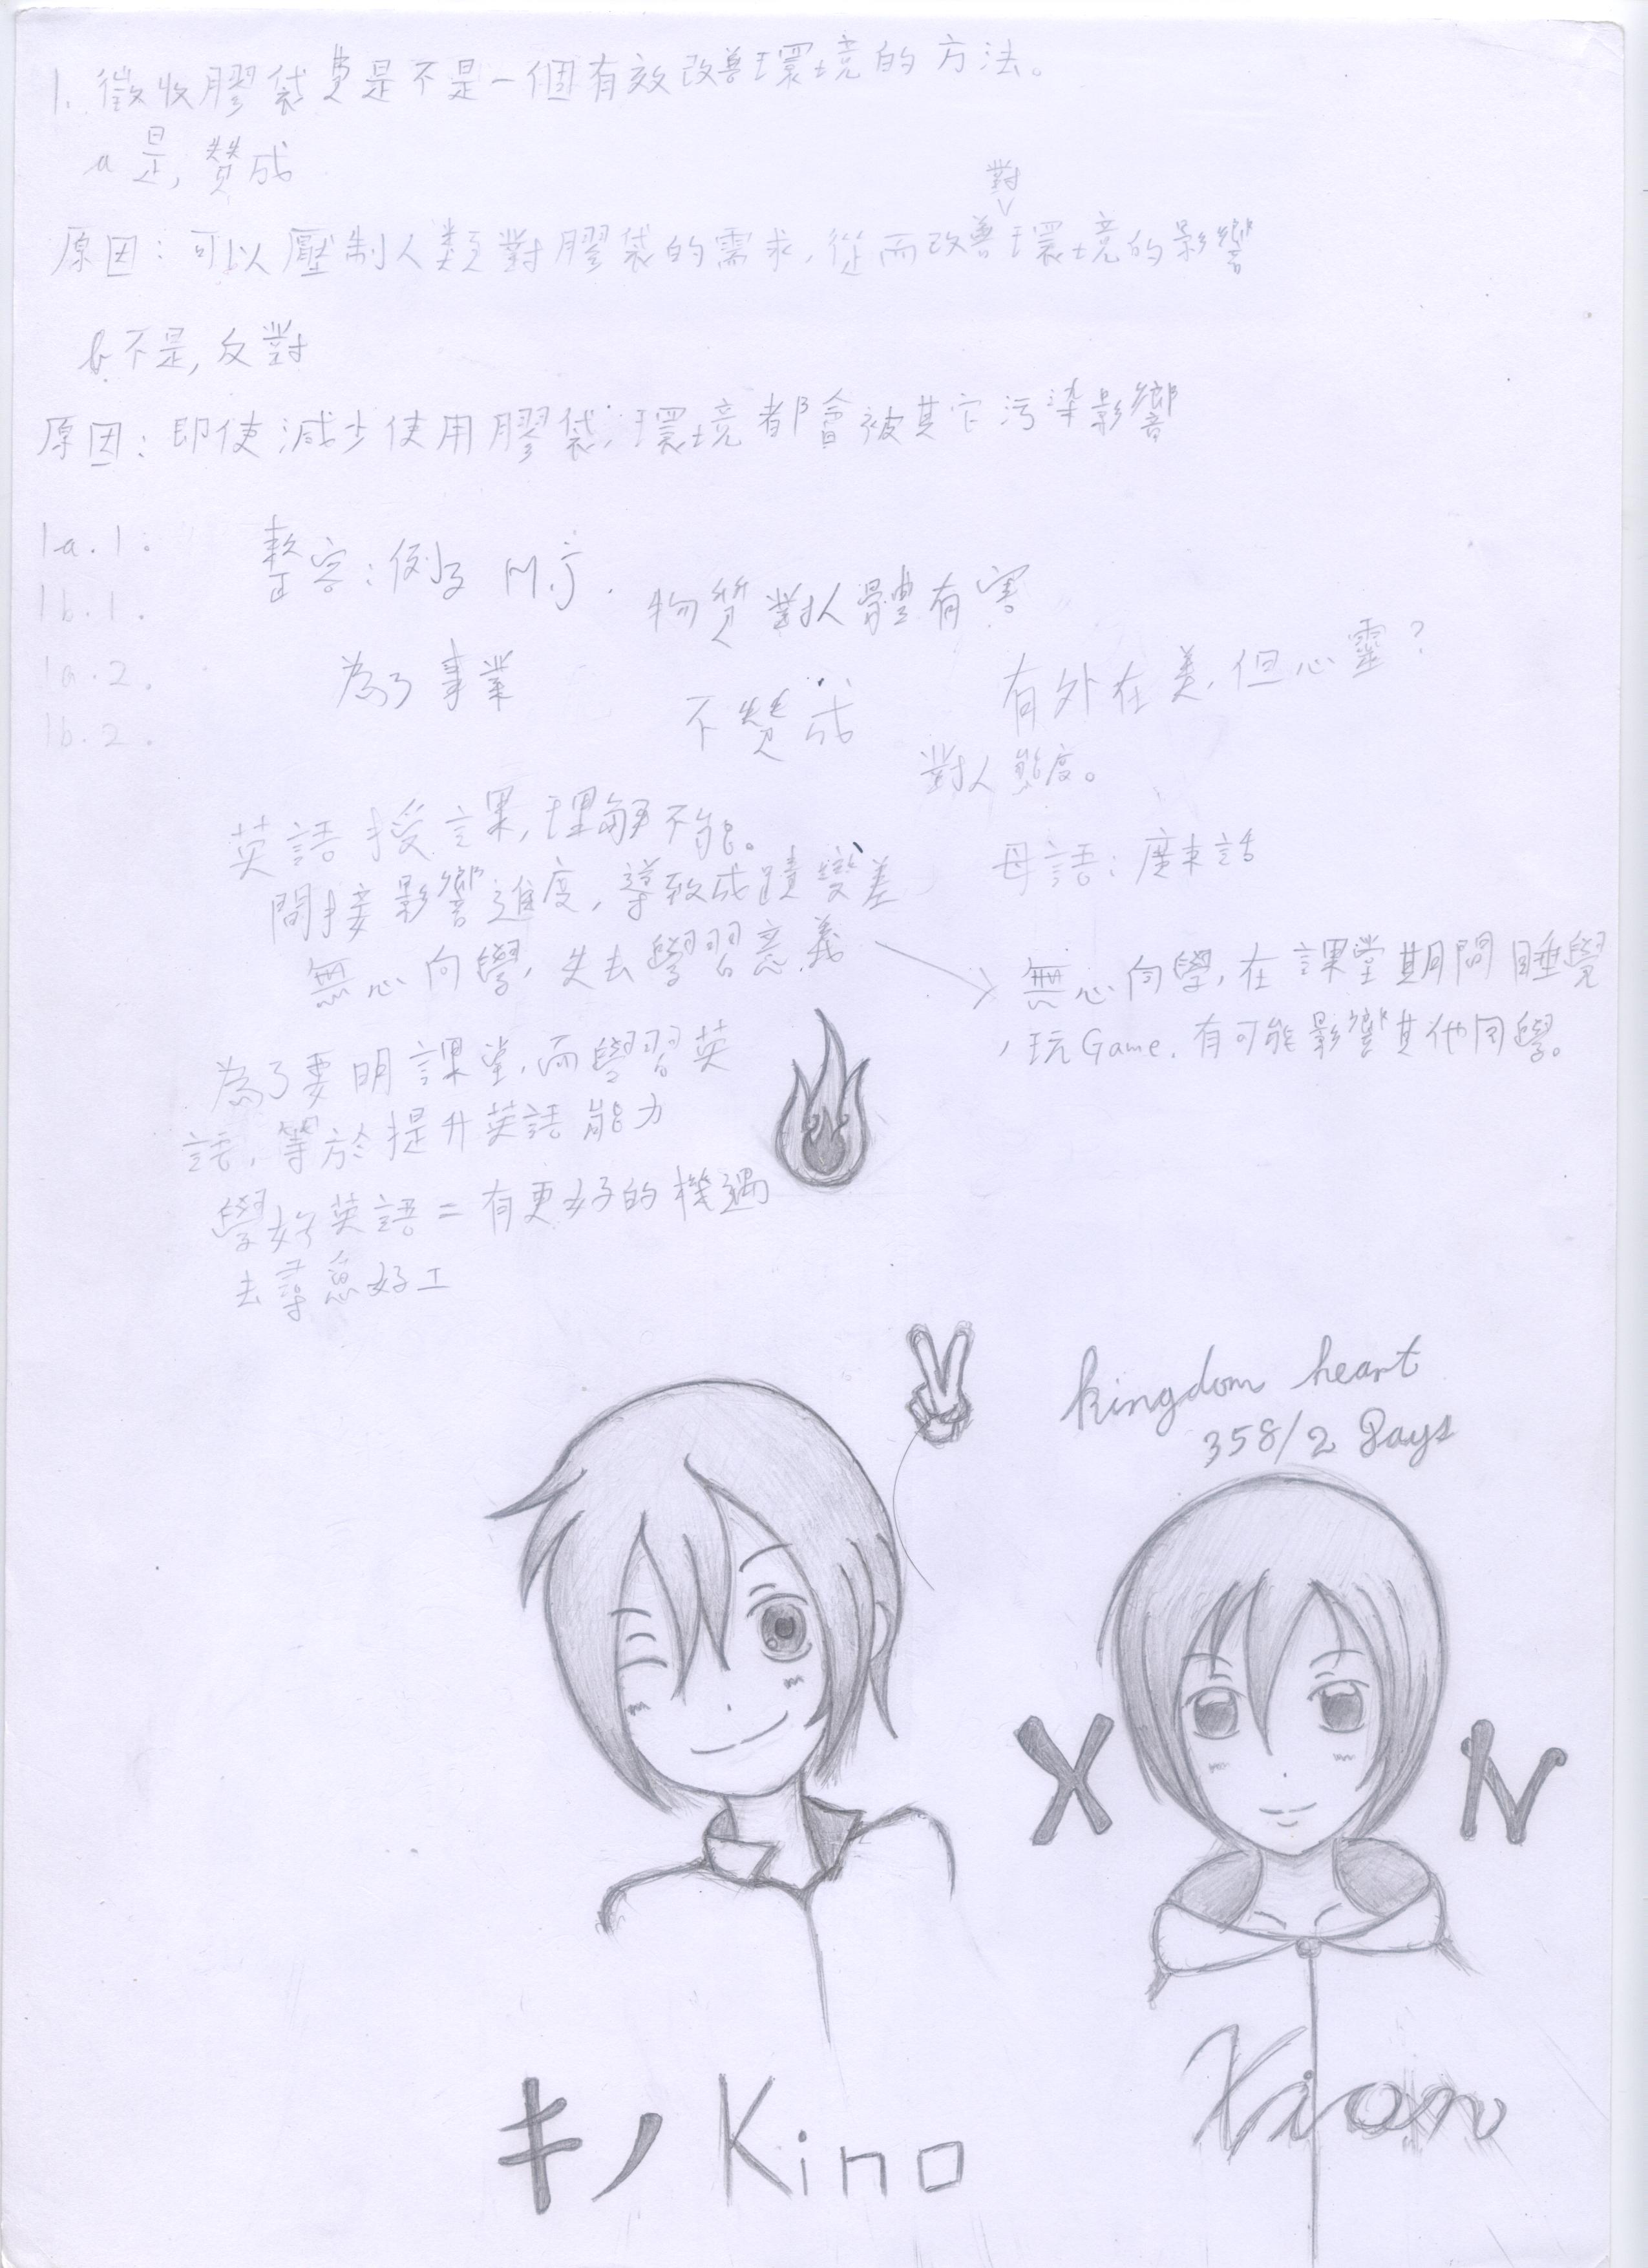 1. 徵收膠袋費是不是一個有效改善環境的方法。
a 是, 贊成
對
原因：可以壓制人類對膠袋的需求, 從而改善環境的影響
b 不是, 反對
原因：即使減少使用膠袋, 環境都會被其它污染影響
1a.1：
1b.1.
1a.2.
1b.2.
整容：例子 M.J.
物質對人體有害
為了事業
不贊成
有外在美, 但心靈？
對人態度。
英語授課, 理解不能。
間接影響進度, 導致成蹟變差
無心向學, 失去學習意義
母語：廣東話
無心向學, 在課堂期間睡覺
, 玩Game, 有可能影響其他同學。
為了要明課堂, 而學習英
語, 等於提升英語能力
學好英語 = 有更好的機遇
去尋覓好工
kingdom heart
358/2 Days
X N
キノ Kino
Xion